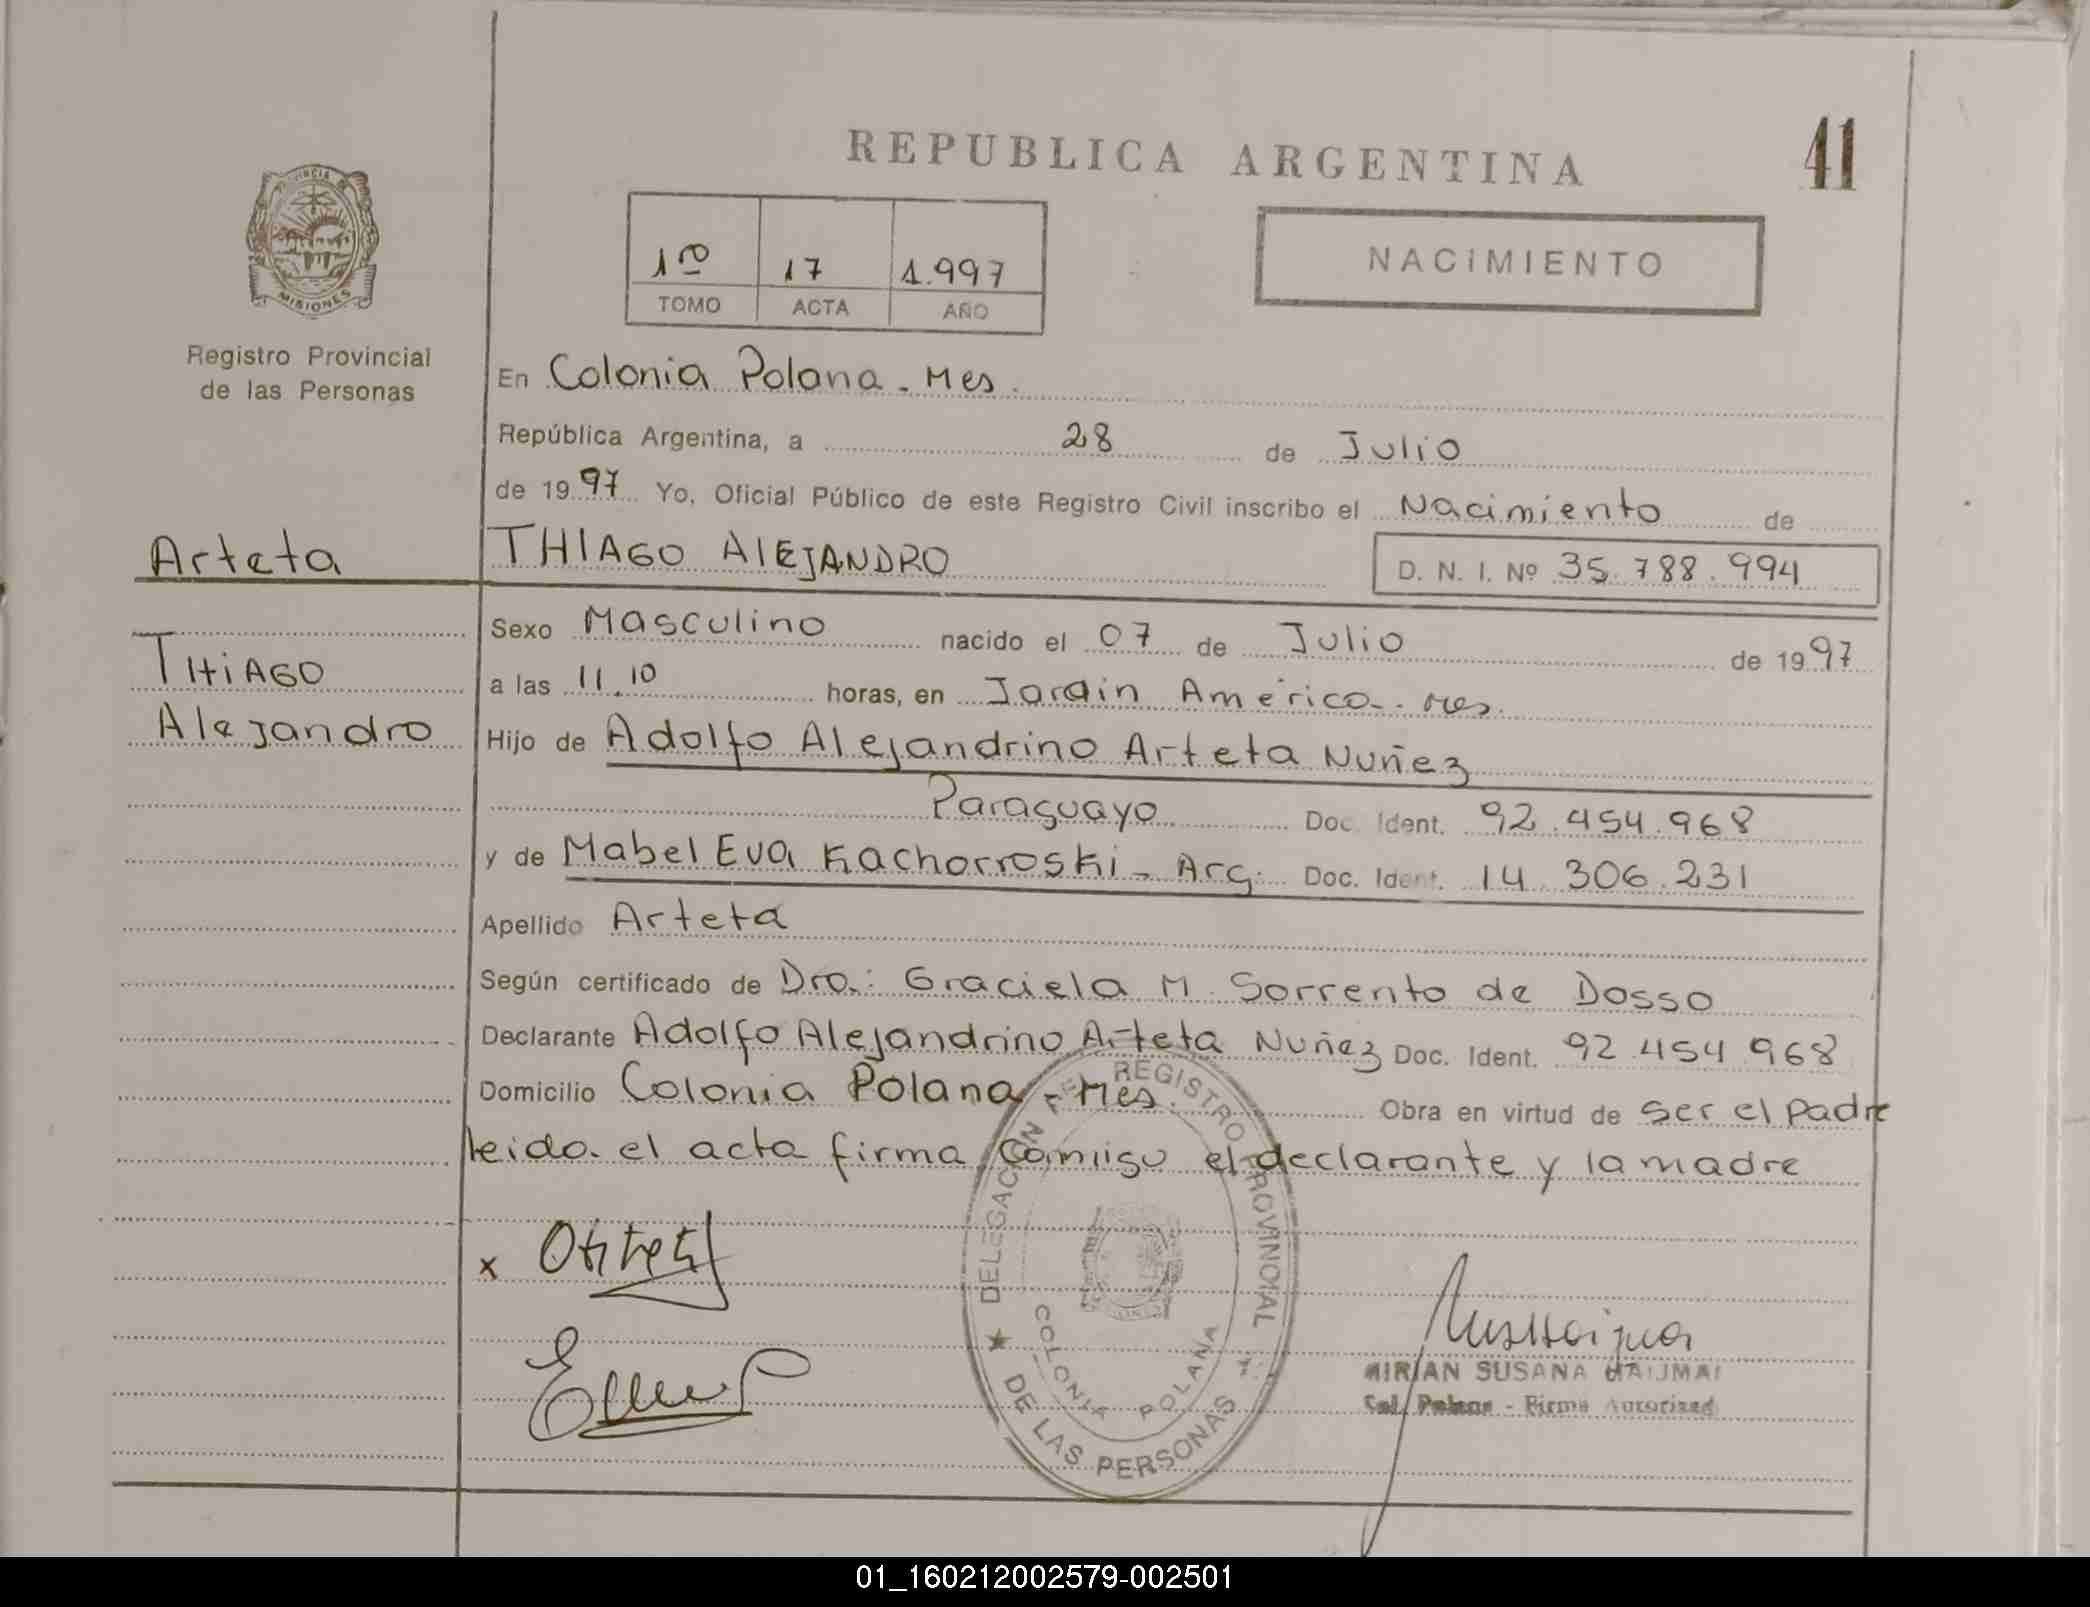 REPUBLICA ARGENTINA
41
PROVINCIA DE
MISIONES
1ro 17 1.997
TOMO ACTA AÑO
NACIMIENTO
Registro Provincial
de las Personas
En Colonia Polana - Mes.
República Argentina, a 28 de Julio
de 19 97 Yo, Oficial Público de este Registro Civil inscribo el Nacimiento de
Arteta
THIAGO AlEJANDRO
D. N. I. Nº 35.788.994
Sexo Masculino nacido el 07 de Julio de 19 97
THiAGO
a las 11.10 horas, en Jardin América - Mes.
Alejandro
Hijo de Adolfo Alejandrino Arteta Nuñez
Paraguayo Doc. Ident. 92.454.968
y de Mabel Eva Kachorroski - Arg. Doc. Ident. 14.306.231
Apellido Arteta
Según certificado de Dra.: Graciela M. Sorrento de Dosso
Declarante Adolfo Alejandrino Arteta Nuñez Doc. Ident. 92.454.968
Domicilio Colonia Polana - Mes. Obra en virtud de ser el padre
leida el acta firma Comiigo el declarante y la madre
x
DELEGACION DEL REGISTRO PROVINCIAL
DE LAS PERSONAS
COLONIA POLANA
MIRIAN SUSANA
Col. Polana - Firma Autorizad
01_160212002579-002501